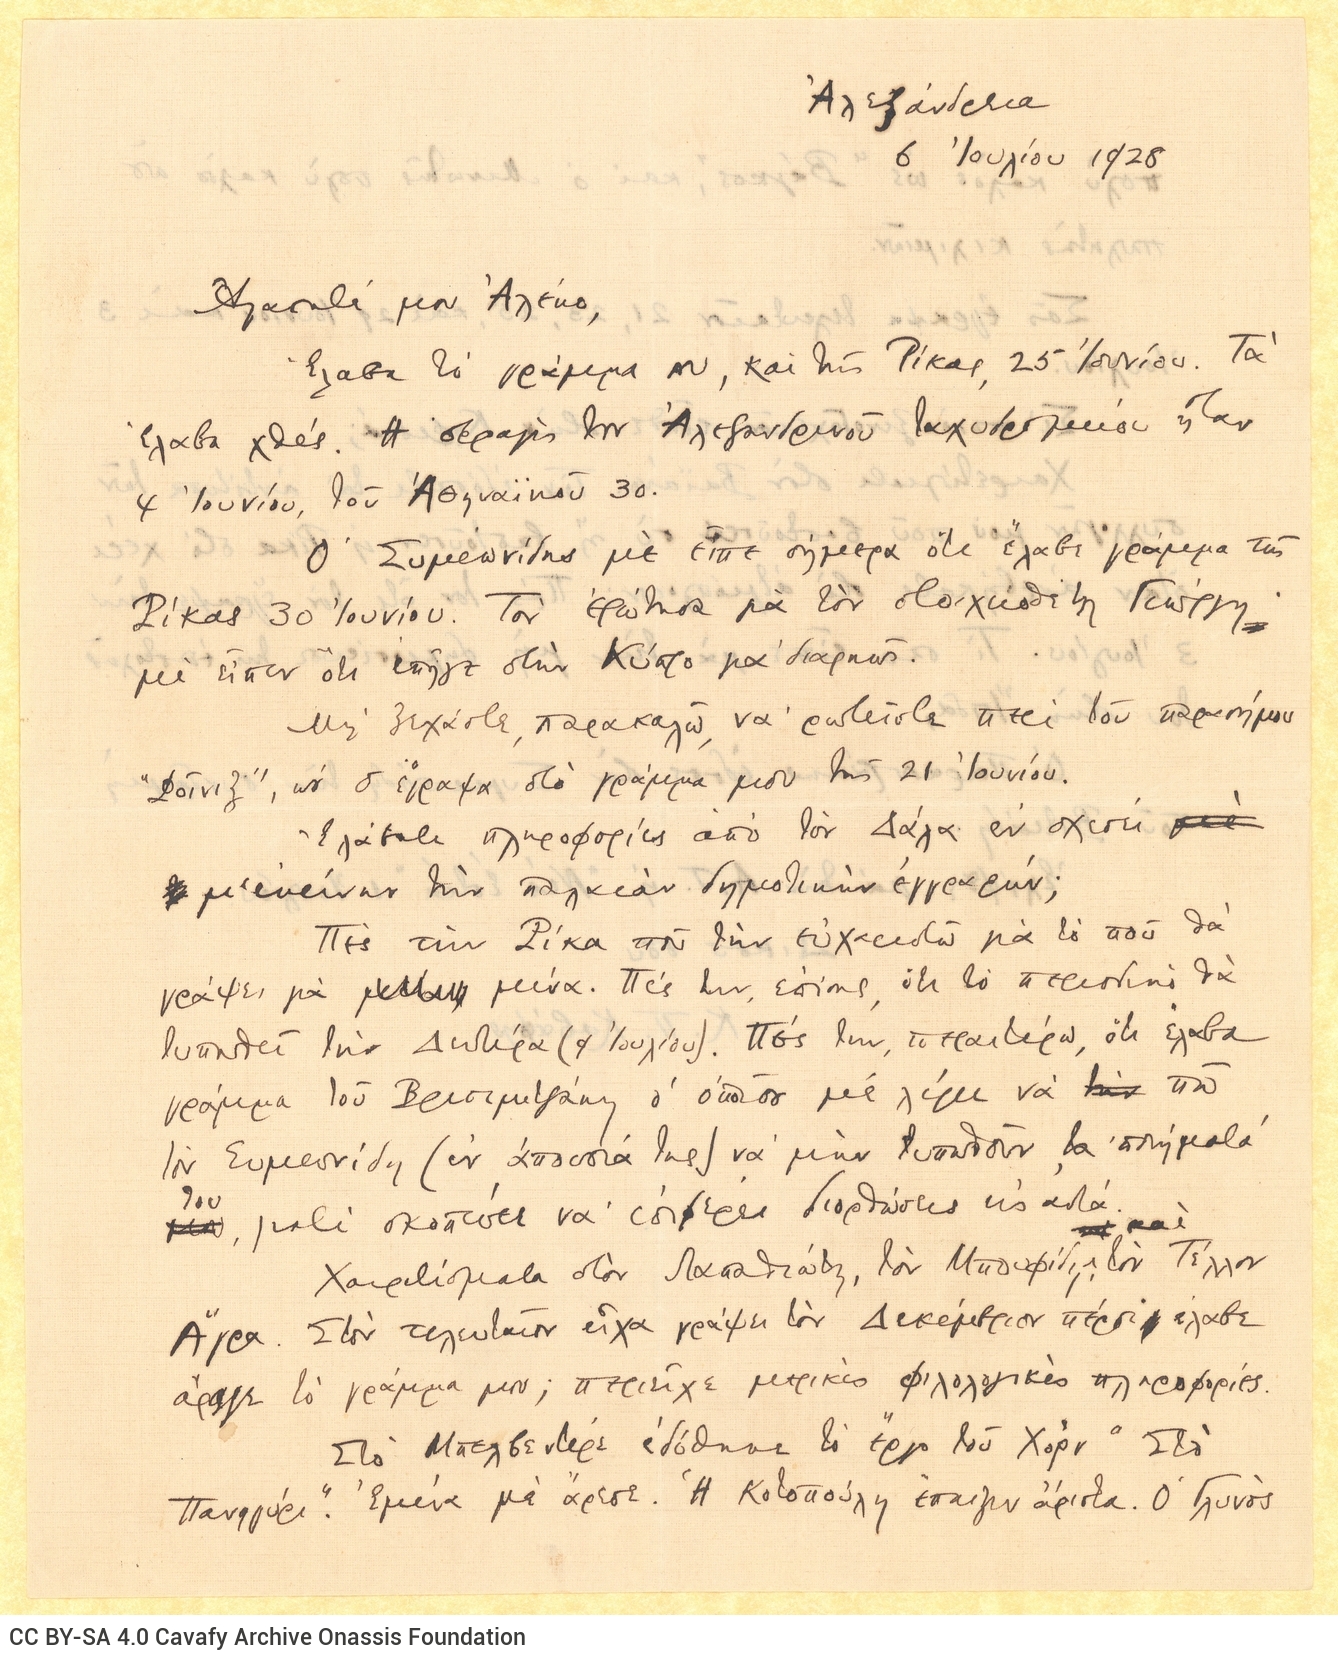 Ἀλεξάνδρεια
6 Ἰουλίου 1928
Ἀγαπητέ μου Ἀλέκο,
Ἔλαβα τὸ γράμμα σου, καὶ τῆς Ρίκας, 25 Ἰουνίου. Τὰ
ἔλαβα χθές. Ἡ σφραγὶς του Ἀλεξανδρινοῦ ταχυδρομείου ἦταν
4 Ἰουνίου, τοῦ Ἀθηναϊκοῦ 30.
Ὁ Συμεωνίδης μὲ εἶπε σήμερα ὅτι ἔλαβε γράμμα τῆς
Ρίκας 30 Ἰουνίου. Τὸν ἐρώτησα γιὰ τὸν στοιχειοθέτη Γεώργη·
μὲ εἶπεν ὅτι ἐπῆγε στὴν Κύπρο γιὰ διαρκῶς.
Μὴ ξεχάστε, παρακαλῶ, νὰ ρωτεῖστε περὶ τοῦ παρασήμου
"Φοῖνιξ", ποὺ σ' ἔγραψα στὸ γράμμα μου τῆς 21 Ἰουνίου.
Ἐλάβατε πληροφορίες ἀπὸ τὸν Δάλα ἐν σχέσει μὲ
μ' ἐκείνην τὴν παλαιὰν δημοτικὴν ἐγγραφήν;
Πὲς τὴν Ρίκα ποῦ τὴν εὐχαριστῶ γιὰ τὸ ποῦ θὰ
γράψει γιὰ μένα. Πές την, ἐπίσης, ὅτι τὸ περιοδικὸ θὰ
τυπωθεῖ τὴν Δευτέρα (9 Ἰουλίου). Πές την, περαιτέρω, ὅτι ἔλαβα
γράμμα τοῦ Βρισιμιτζάκη ὁ ὁποῖος μὲ λέγει νὰ τὴν πῶ
τὸν Συμεωνίδη (ἐν ἀπουσίᾳ της) νὰ μὴν τυπωθοῦν τὰ ποιήματά
του, γιατὶ σκοπεύει νὰ ἐπιφέρει διορθώσεις εἰς αὐτά.
καὶ
Χαιρετίσματα στὸν Λαπαθιώτη, τὸν Μπουφίδη, τὸν Τέλλον
Ἄγρα. Στὸν τελευταῖον εἶχα γράψει τὸν Δεκέμβριον πέρσι· ἔλαβε
ἄραγε τὸ γράμμα μου; περιεῖχε μερικὲς φιλολογικὲς πληροφορίες.
Στὸ Μπελβεντέρε ἐδόθηκε τὸ ἔργο τοῦ Χὸρν "Στὸ
Πανηγύρι". Ἐμένα μὲ ἄρεσε. Ἡ Κοτοπούλη ἔπαιξεν ἄριστα. Ὁ Γληνὸς
CC BY-SA 4.0 Cavafy Archive Onassis Foundation